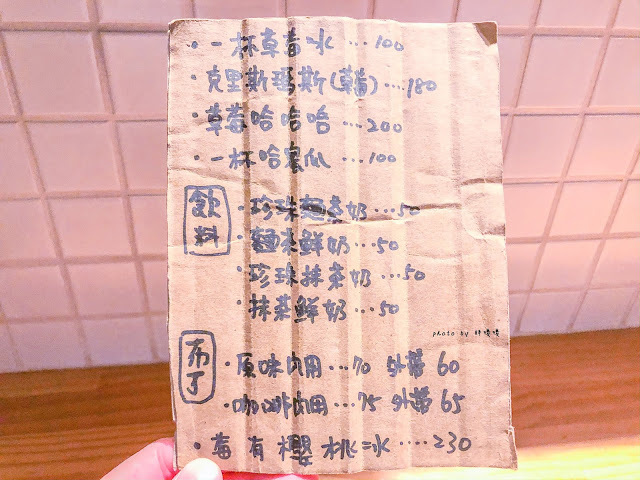 ·一杯草莓冰…100
·克里斯瑪斯(草莓)…180
·草莓哈哈哈…200
·一杯哈蜜瓜…100
飲料
·珍珠麵茶奶…50
·麵茶鮮奶…50
·珍珠抹茶奶…50
·抹茶鮮奶…50
photo by
布丁
·原味內用…70 外帶60
·咖啡內用…75 外帶65
·莓有櫻桃=冰…230